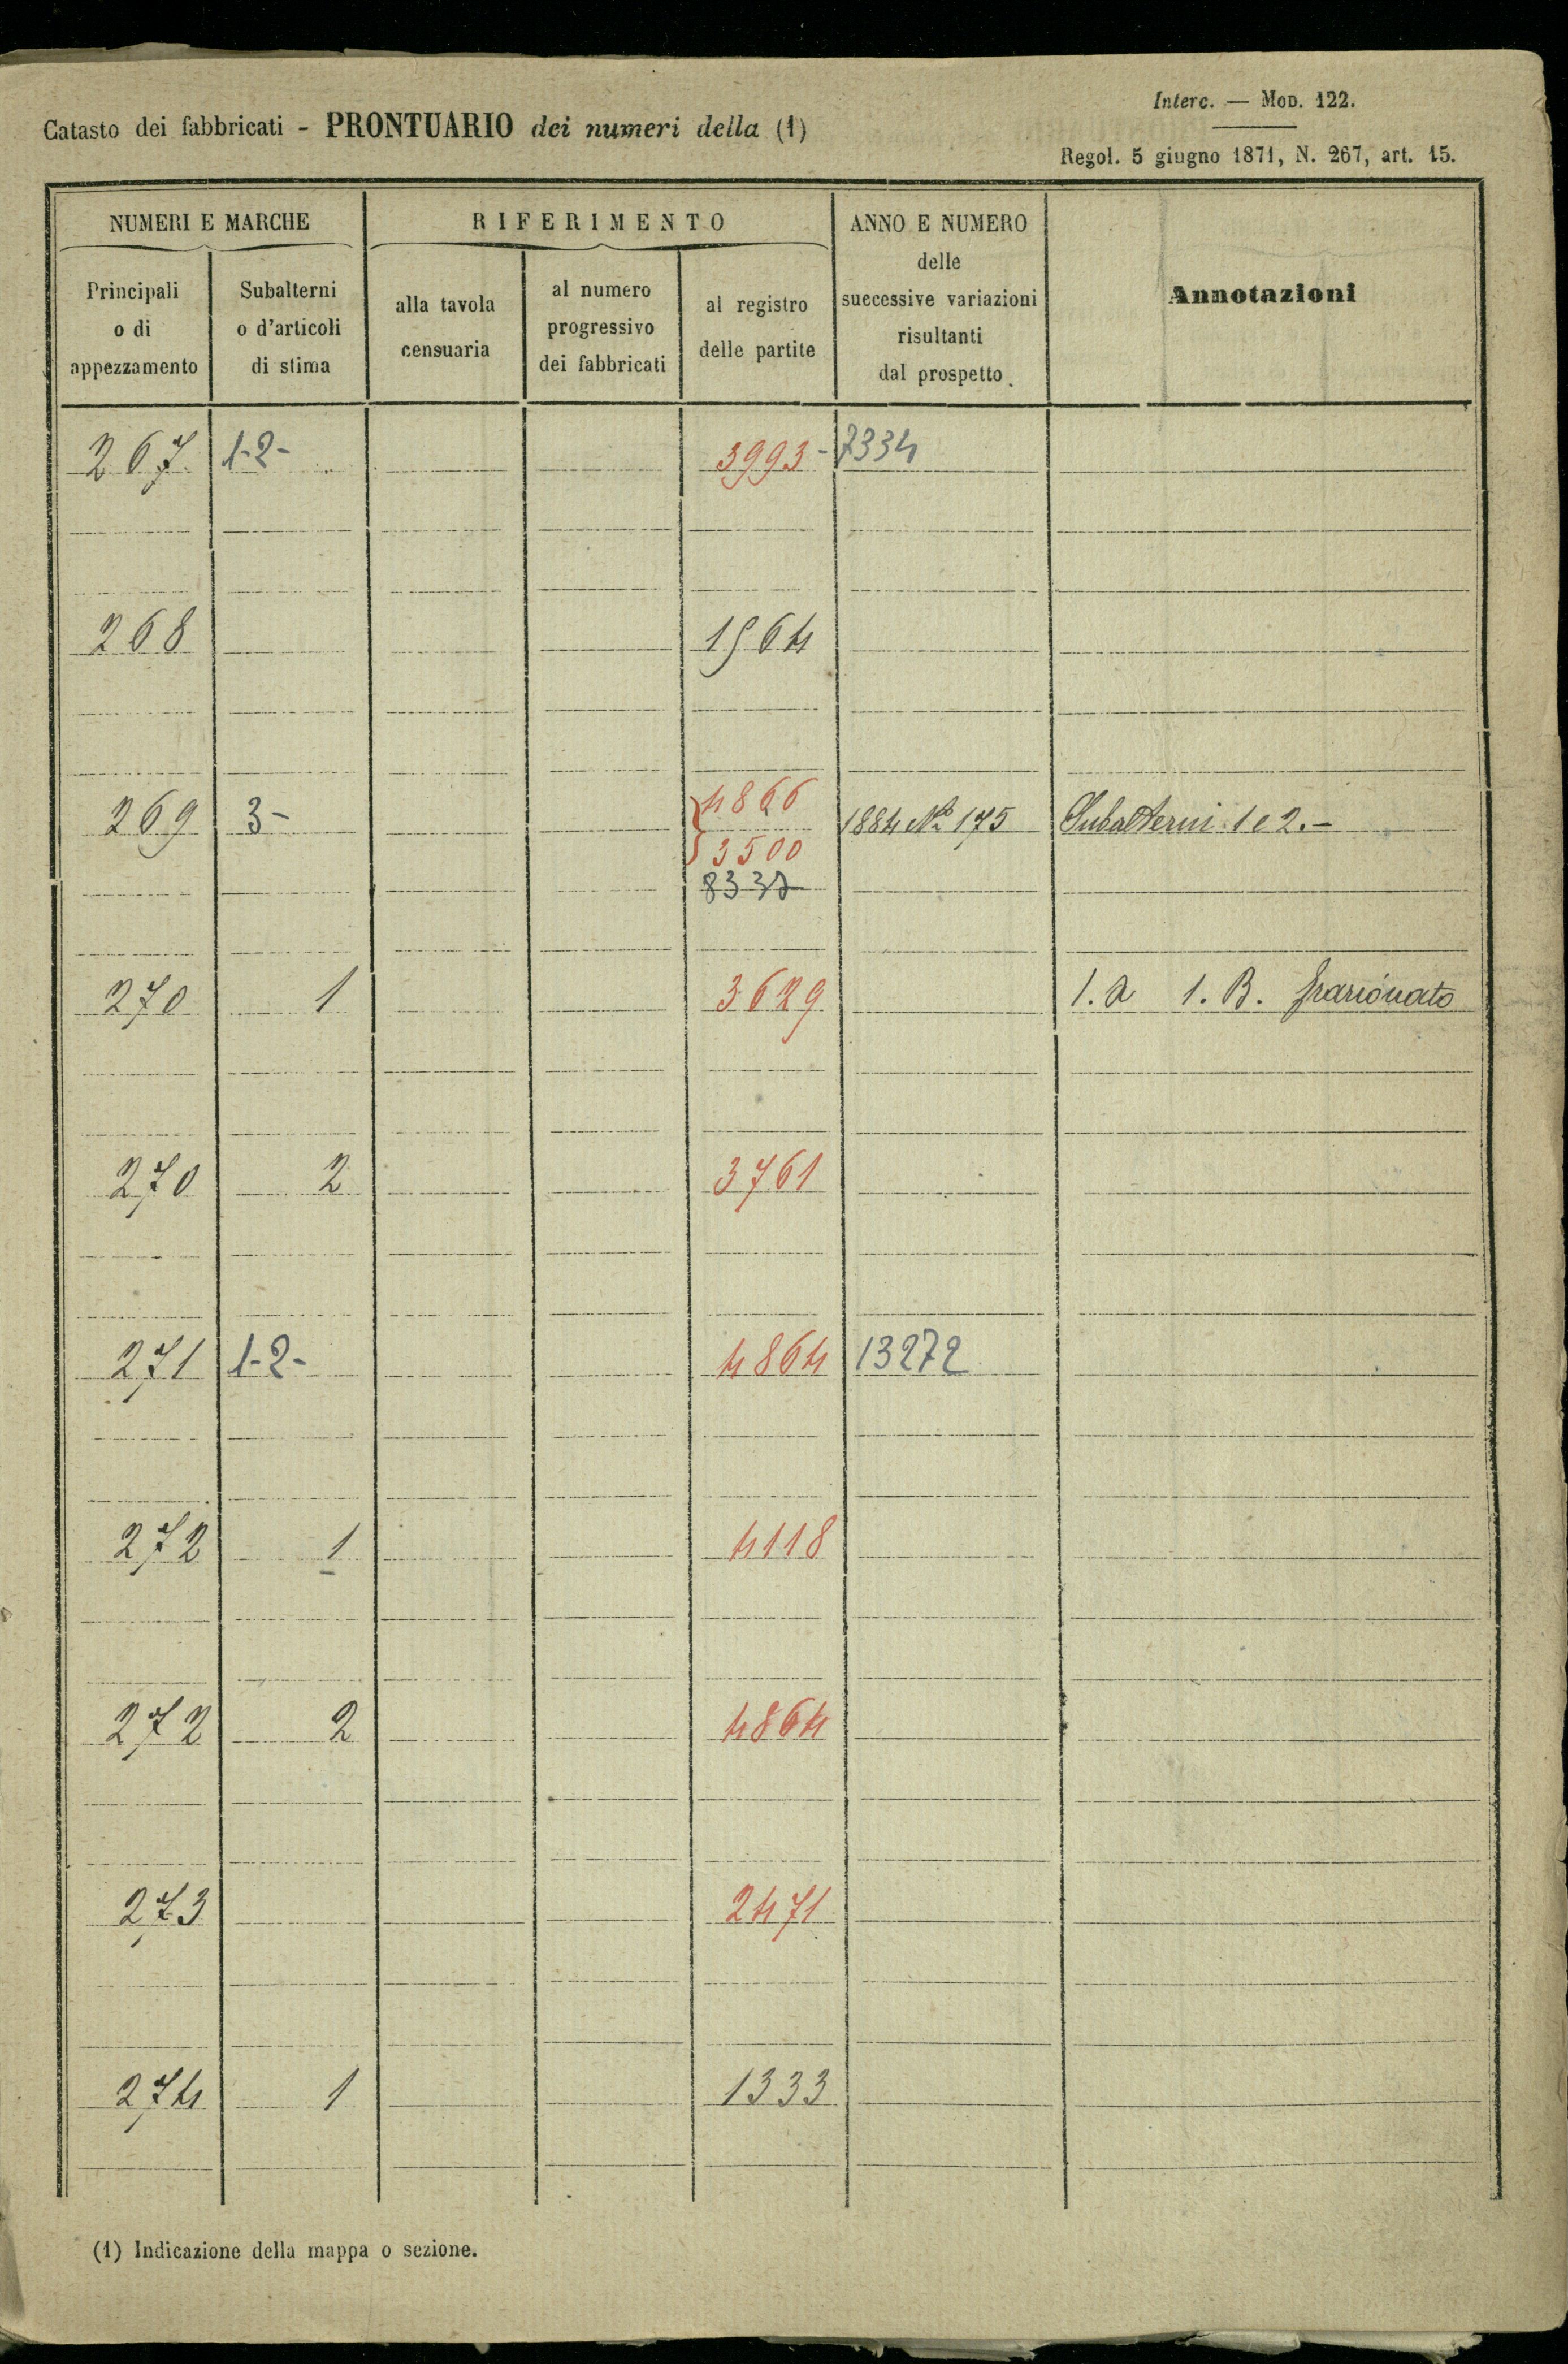 Interc. — Mod. 122.
Catasto dei fabbricati - PRONTUARIO dei numeri della (1)
Regol. 5 giugno 1871, N. 267, art. 15.
NUMERI E MARCHE
RIFERIMENTO
ANNO E NUMERO
delle
successive variazioni
risultanti
dal prospetto
Annotazioni
Principali
o di
appezzamento
Subalterni
o d'articoli
di stima
alla tavola
censuaria
al numero
progressivo
dei fabbricati
al registro
delle partite
267 1-2- 3993 - 7334
268 1964
269 3- 4866 1884 No 175 Subalterni 1 e 2.-
3500
8337
270 1 3629 1.a 1.B. frazionato
270 2 3761
271 1-2- 4864 13272
272 1 4118
272 2 4864
273 2471
274 1 1333
(1) Indicazione della mappa o sezione.